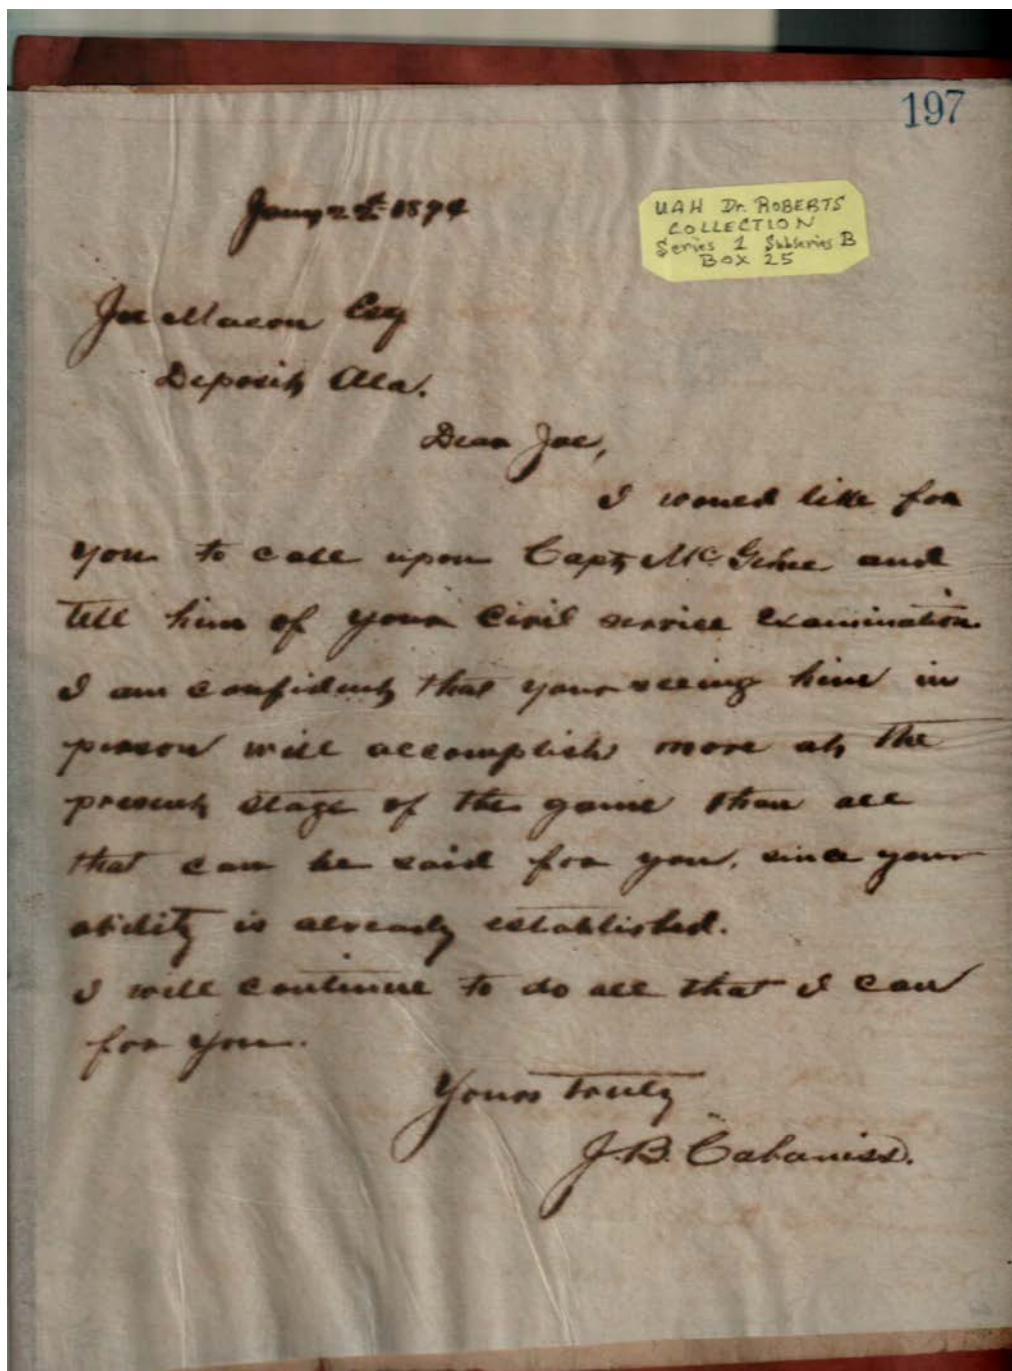 197
Jany 2d 1894
UAH Dr. ROBERTS
COLLECTION
Series 1 Subseries B
Box 25
Joe Macon Esq
Deposit, Ala.
Dear Joe,
I would like for
you to call upon Capt, Mc and
tell him of your civil service examination
I am confident that your seeing him in
person will accomplish more at the
present stage of the game than all
that can be said for you, since your
ability is already established.
I will continue to do all that I can
for you.
Yours truly
J.B. Cabaniss.